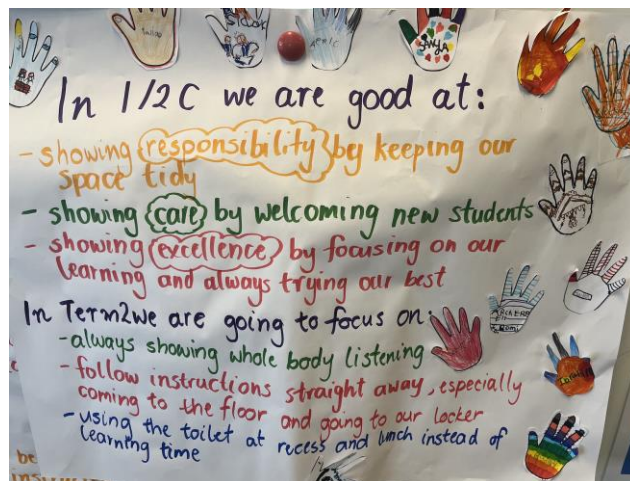 In 1/2C we are good at:
- showing responsibility by keeping our
space tidy
- showing care by welcoming new students
- showing excellence by focusing on our
learning and always trying our best
In Term2 we are going to focus on:
- always showing whole body listening
- follow instructions straight away, especially
coming to the floor and going to our locker
- using the toilet at recess and lunch instead of
learning time
be